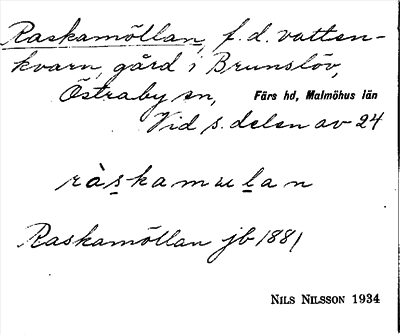 Raskamöllan, f.d. vatten-
kvarn, gård i Brunslöv,
Östraby sn, Färs hd, Malmöhus län
Vid s. delen av 24
Raskamöllan jb 1881
NILS NILSSON 1934